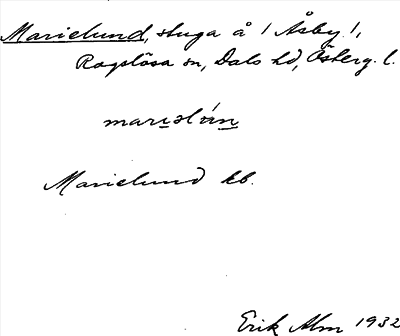 Marielund, stuga å / Åsby /,
Rogslösa sn, Dals hd, Österg. l.
marıəlún
Marielund kb.
Erik Alm 1932